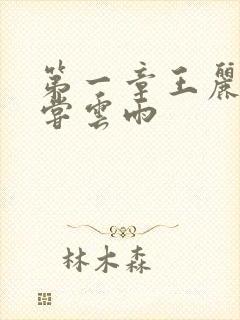 第一章王麗
嘗雲雨
林木森